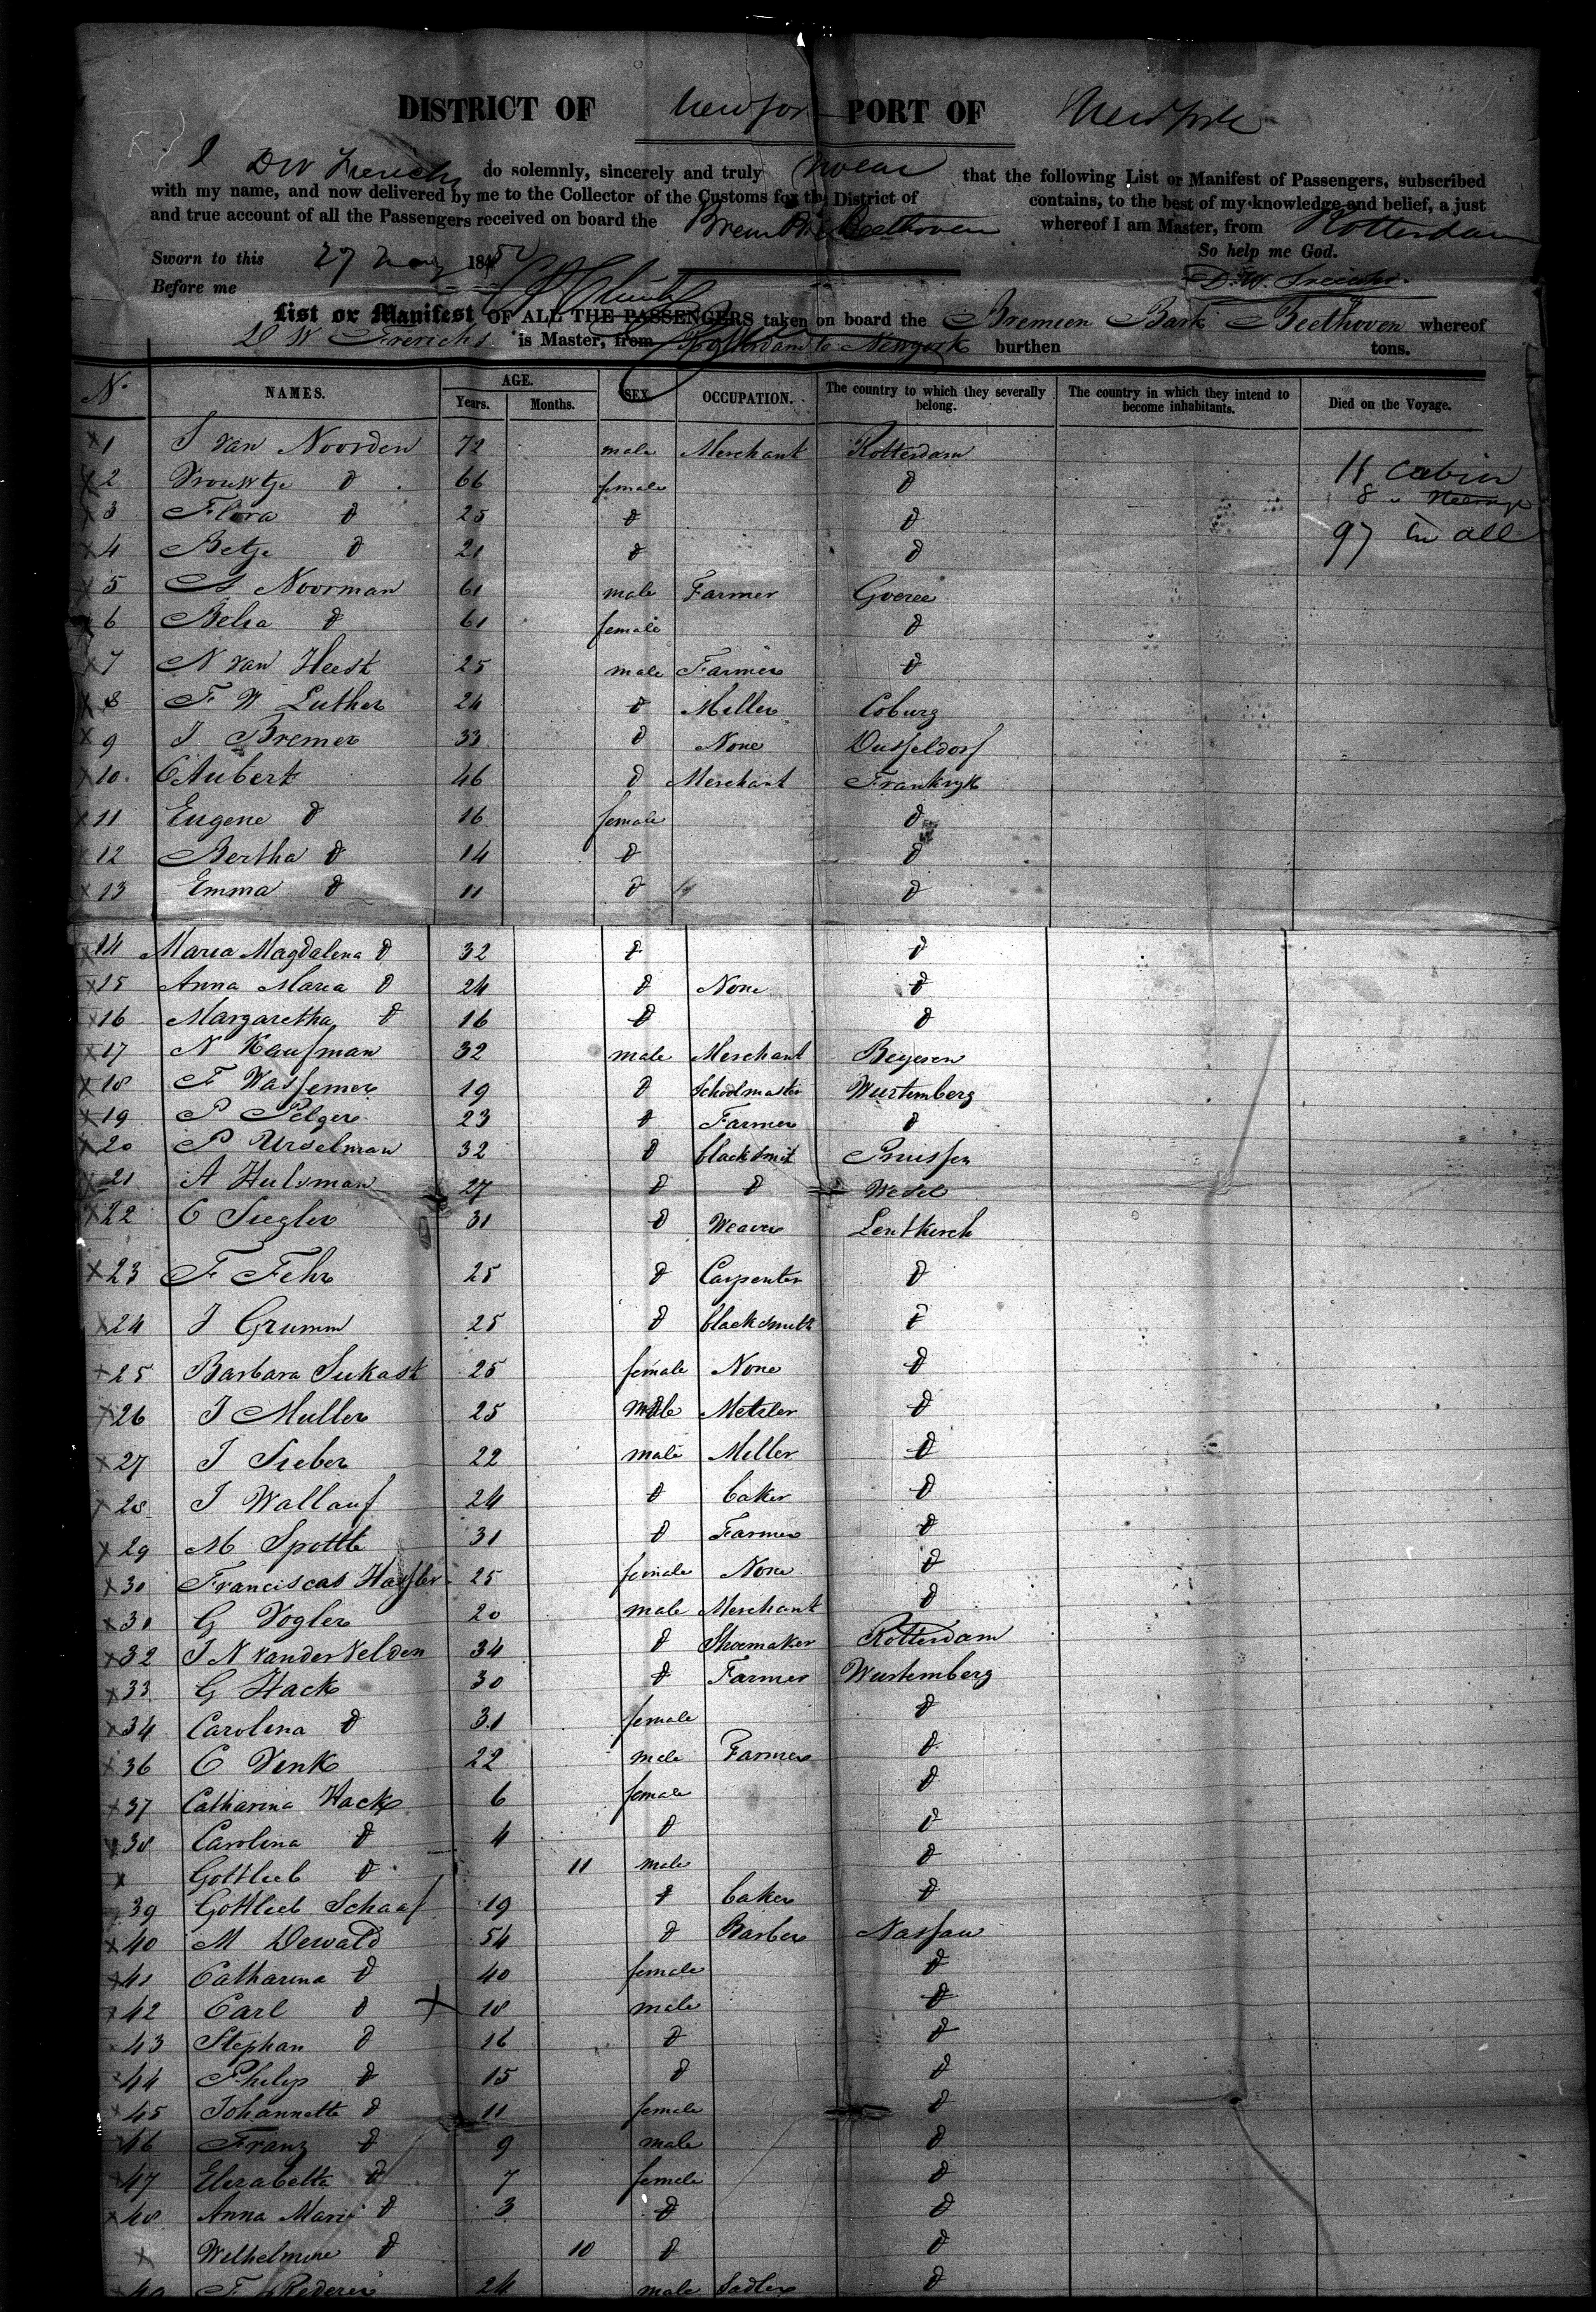 DISTRICT OF Newyork PORT OF Newyork
I D W Frerichs do solemnly, sincerely and truly swear that the following List or Manifest of Passengers, subscribed
with my name, and now delivered by me to the Collector of the Customs for the District of contains, to the best of my knowledge and belief, a just
and true account of all the Passengers received on board the Beethoven whereof I am Master, from Rotterdam
Sworn to this 27 18 So help me God.
Before me D. W. Frerichs.
List or Manifest OF ALL THE PASSENGERS taken on board the Bremen Bark Beethoven whereof
D W Frerichs is Master, from Rotterdam to Newyork burthen tons.
N. NAMES. AGE. Years. Months. SEX. OCCUPATION. The country to which they severally belong. The country in which they intend to become inhabitants. Died on the Voyage.
1 J van Noorden 72 male Merchant Rotterdam
2 Vrouwtje d 66 female d
11 Cabin
3 Flora d 25 d d
97 in all
4 Betje d 21 d d
5 A Noorman 61 male Farmer Goeree
6 Belia d 61 female d
7 N van Heest 25 male Farmer d
8 F W Luther 24 d Miller Coburg
9 J Bremer 33 d None Dusseldorf
10 C Aubert 46 d Merchant Frankryk
11 Eugene d 16 female d
12 Bertha d 14 d d
13 Emma d 11 d d
14 Maria Magdalena d 32 d d
15 Anna Maria d 24 d None d
16 Margaretha d 16 d d
17 N Kaufman 32 male Merchant Beyeren
18 F Wassemer 19 d Schoolmaster Wurtemberg
19 P Pelger 23 d Farmer d
20 P Urselman 32 d blacksmit Pruissen
21 A Hulsman 27 d d Wesel
22 C Siegler 31 d Weaver Leutkirch
23 F Fehr 25 d Carpenter d
24 J Grumm 25 d blacksmith d
25 Barbara Sukast 25 female None d
26 J Muller 25 male Metzler d
27 J Sieber 22 male Miller d
28 J Wallauf 24 d baker d
29 M Spottt 31 d Farmer d
30 Franciscas Hassler 25 female None d
30 G Vogler 20 male Merchant d
32 J N van der Velden 34 d Shoemaker Rotterdam
33 G Hack 30 d Farmer Wurtemberg
34 Carolina d 31 female d
36 C Venk 22 male Farmer d
37 Catharina Hack 6 female d
38 Carolina d 4 d d
Gottlieb d 11 male d
39 Gottlieb Schaaf 19 d baker d
40 M Dewald 54 d Barber Nassau
41 Catharina d 40 female d
42 Carl d 18 male d
43 Stephan d 16 d d
44 Philip d 15 d d
45 Johannette d 11 female d
46 Franz d 9 male d
47 Elizabetta d 7 female d
48 Anna Mari d 3 d d
Wilhelmine d 10 d d
49 F Rederer 24 male Sadler d